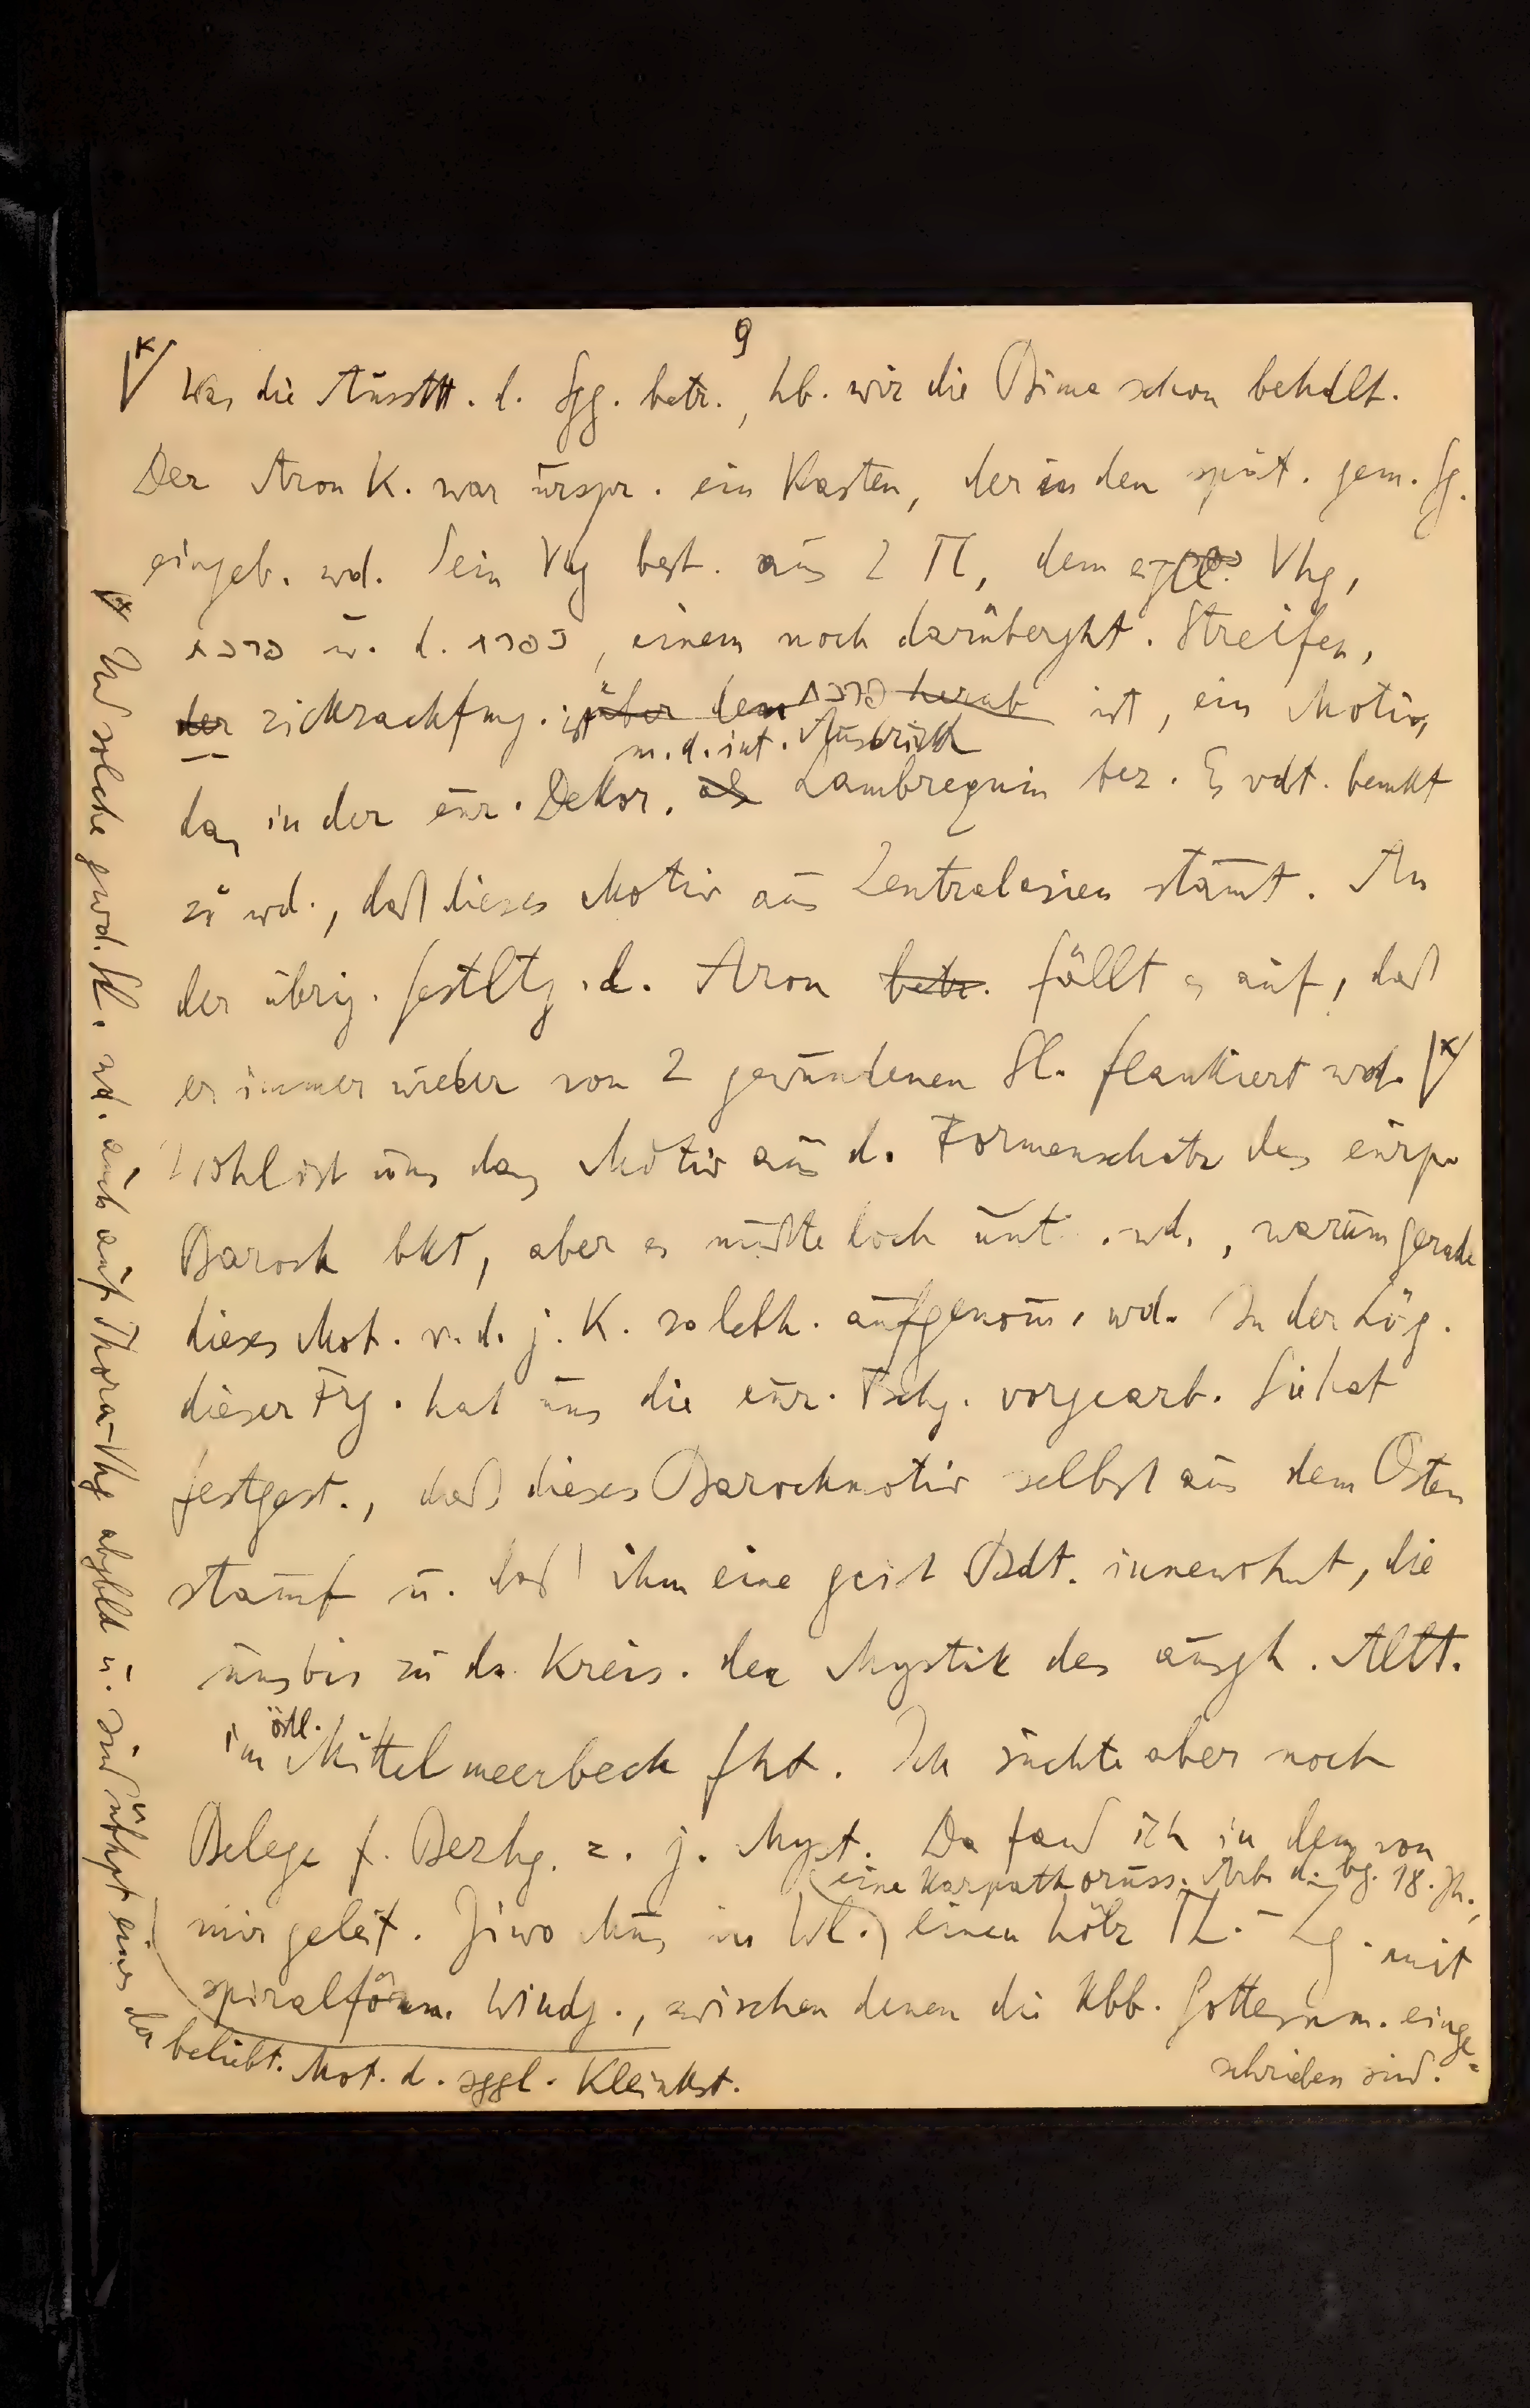 9
Was die Ausstt. d. Sgg. betr., hb. wir die Bima schon behdlt.
Der Aron K. war urspr. ein Kasten, der in den spät. gem. Sg.
eingeb. wd. Sein Vhg best. aus 2 Tl, dem eigtl. Vhg,
פרכת u. d. כפרת, einem noch darüberght. Streifen,
der zickzackfmg. ist über dem פרכת herab ist, ein Motiv,
m. d. int. Ausdruck
das in der eur. Dekor. als Lambrequin bez. Es vdt. bemkt
zu wd., daß dieses Motiv aus Zentralasien stammt. An
der übrig. Gestltg. d. Aron betr. fällt es auf, daß
er immer wieder von 2 gewundenen Sl. flankiert wd.
Wohl ist uns das Motiv aus d. Formenschatz des eurp.
Barock bkt, aber es müßte doch unt. wd., warum gerade
dieses Mot. v. d. j. K. so lebh. aufgenom. wd. In der Lög.
dieser Frg. hat uns die eur. Fschg. vorgearb. Sie hat
festgest., daß dieses Barockmotiv selbst aus dem Osten
stammt u. daß ihm eine geist Bdt. innewohnt, die
uns bis zu d. Kreis. der Mystik des ausgh. Altt.
im östl. Mittelmeerbeck fht. Ich suchte aber noch
Belege f. Bezhg. z. j. Myst. Da fand ich in dem von
(eine karpathoruss. Arb. d. bg. 18. Jh.,
mir geleit. Jiwo Mus in Wl.) einen hölz TZ.-Zg. mit
spiralförm. Windg., zwischen denen die kbb. Gottesnm. einge-
schrieben sind.
Und solche gwd. Sl. wd. auch auf Thora-Vhg abgbld u. sind übhpt eines der
beliebt. Mot. d. sggl. Kleinkst.